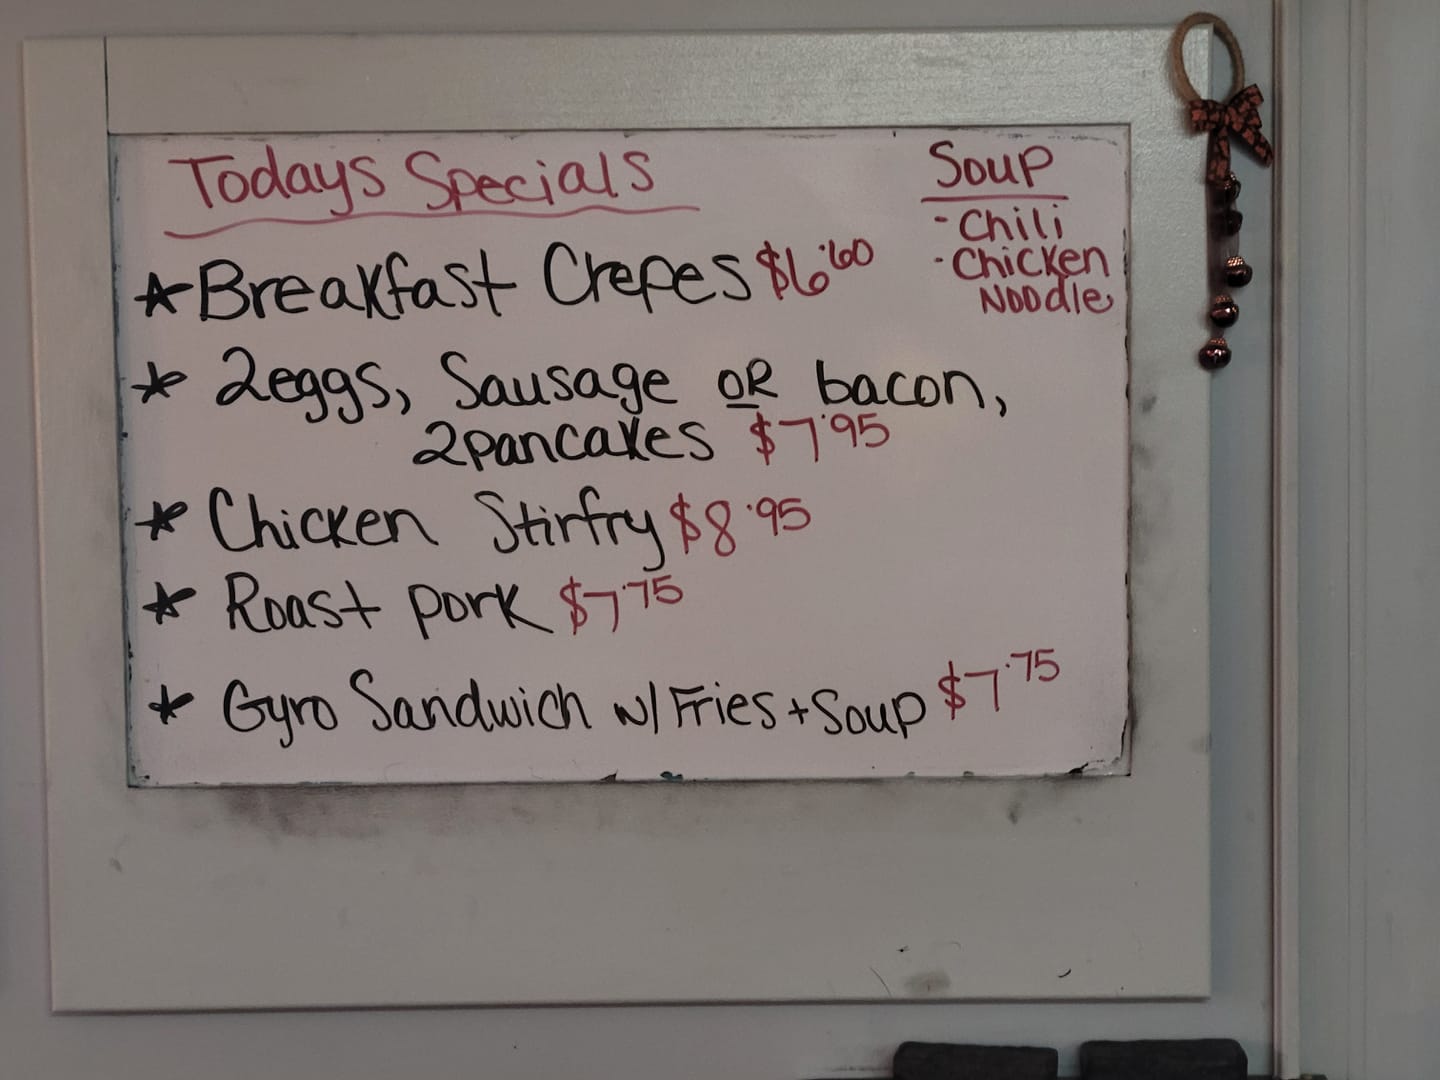 Todays Specials
★ Breakfast Crepes $6.60
★ 2eggs, Sausage OR bacon,
2pancakes $7.95
★ Chicken Stirfry $8.95
★ Roast pork $7.75
★ Gyro Sandwich w/ Fries + Soup $7.75
Soup
- Chili
- Chicken
Noodle